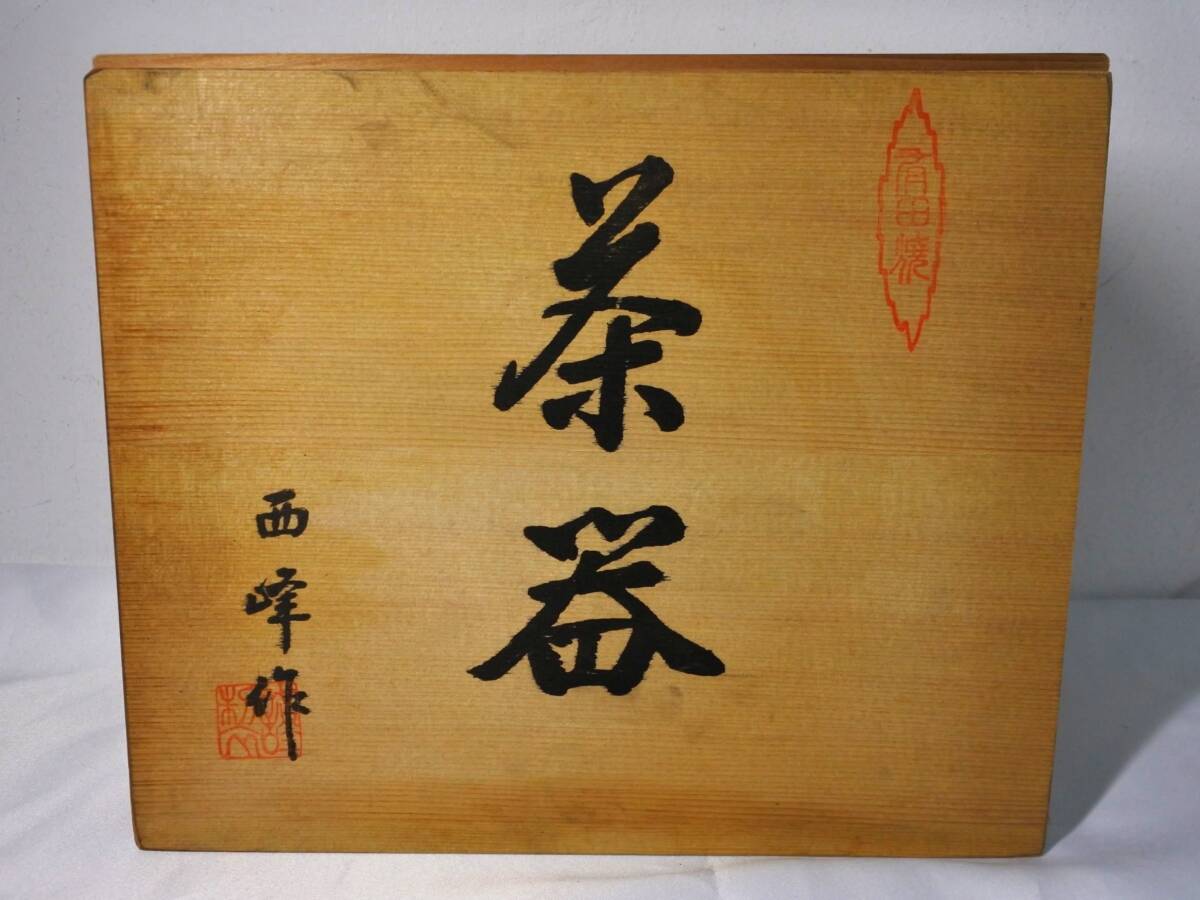 有田焼
茶器
西峰作